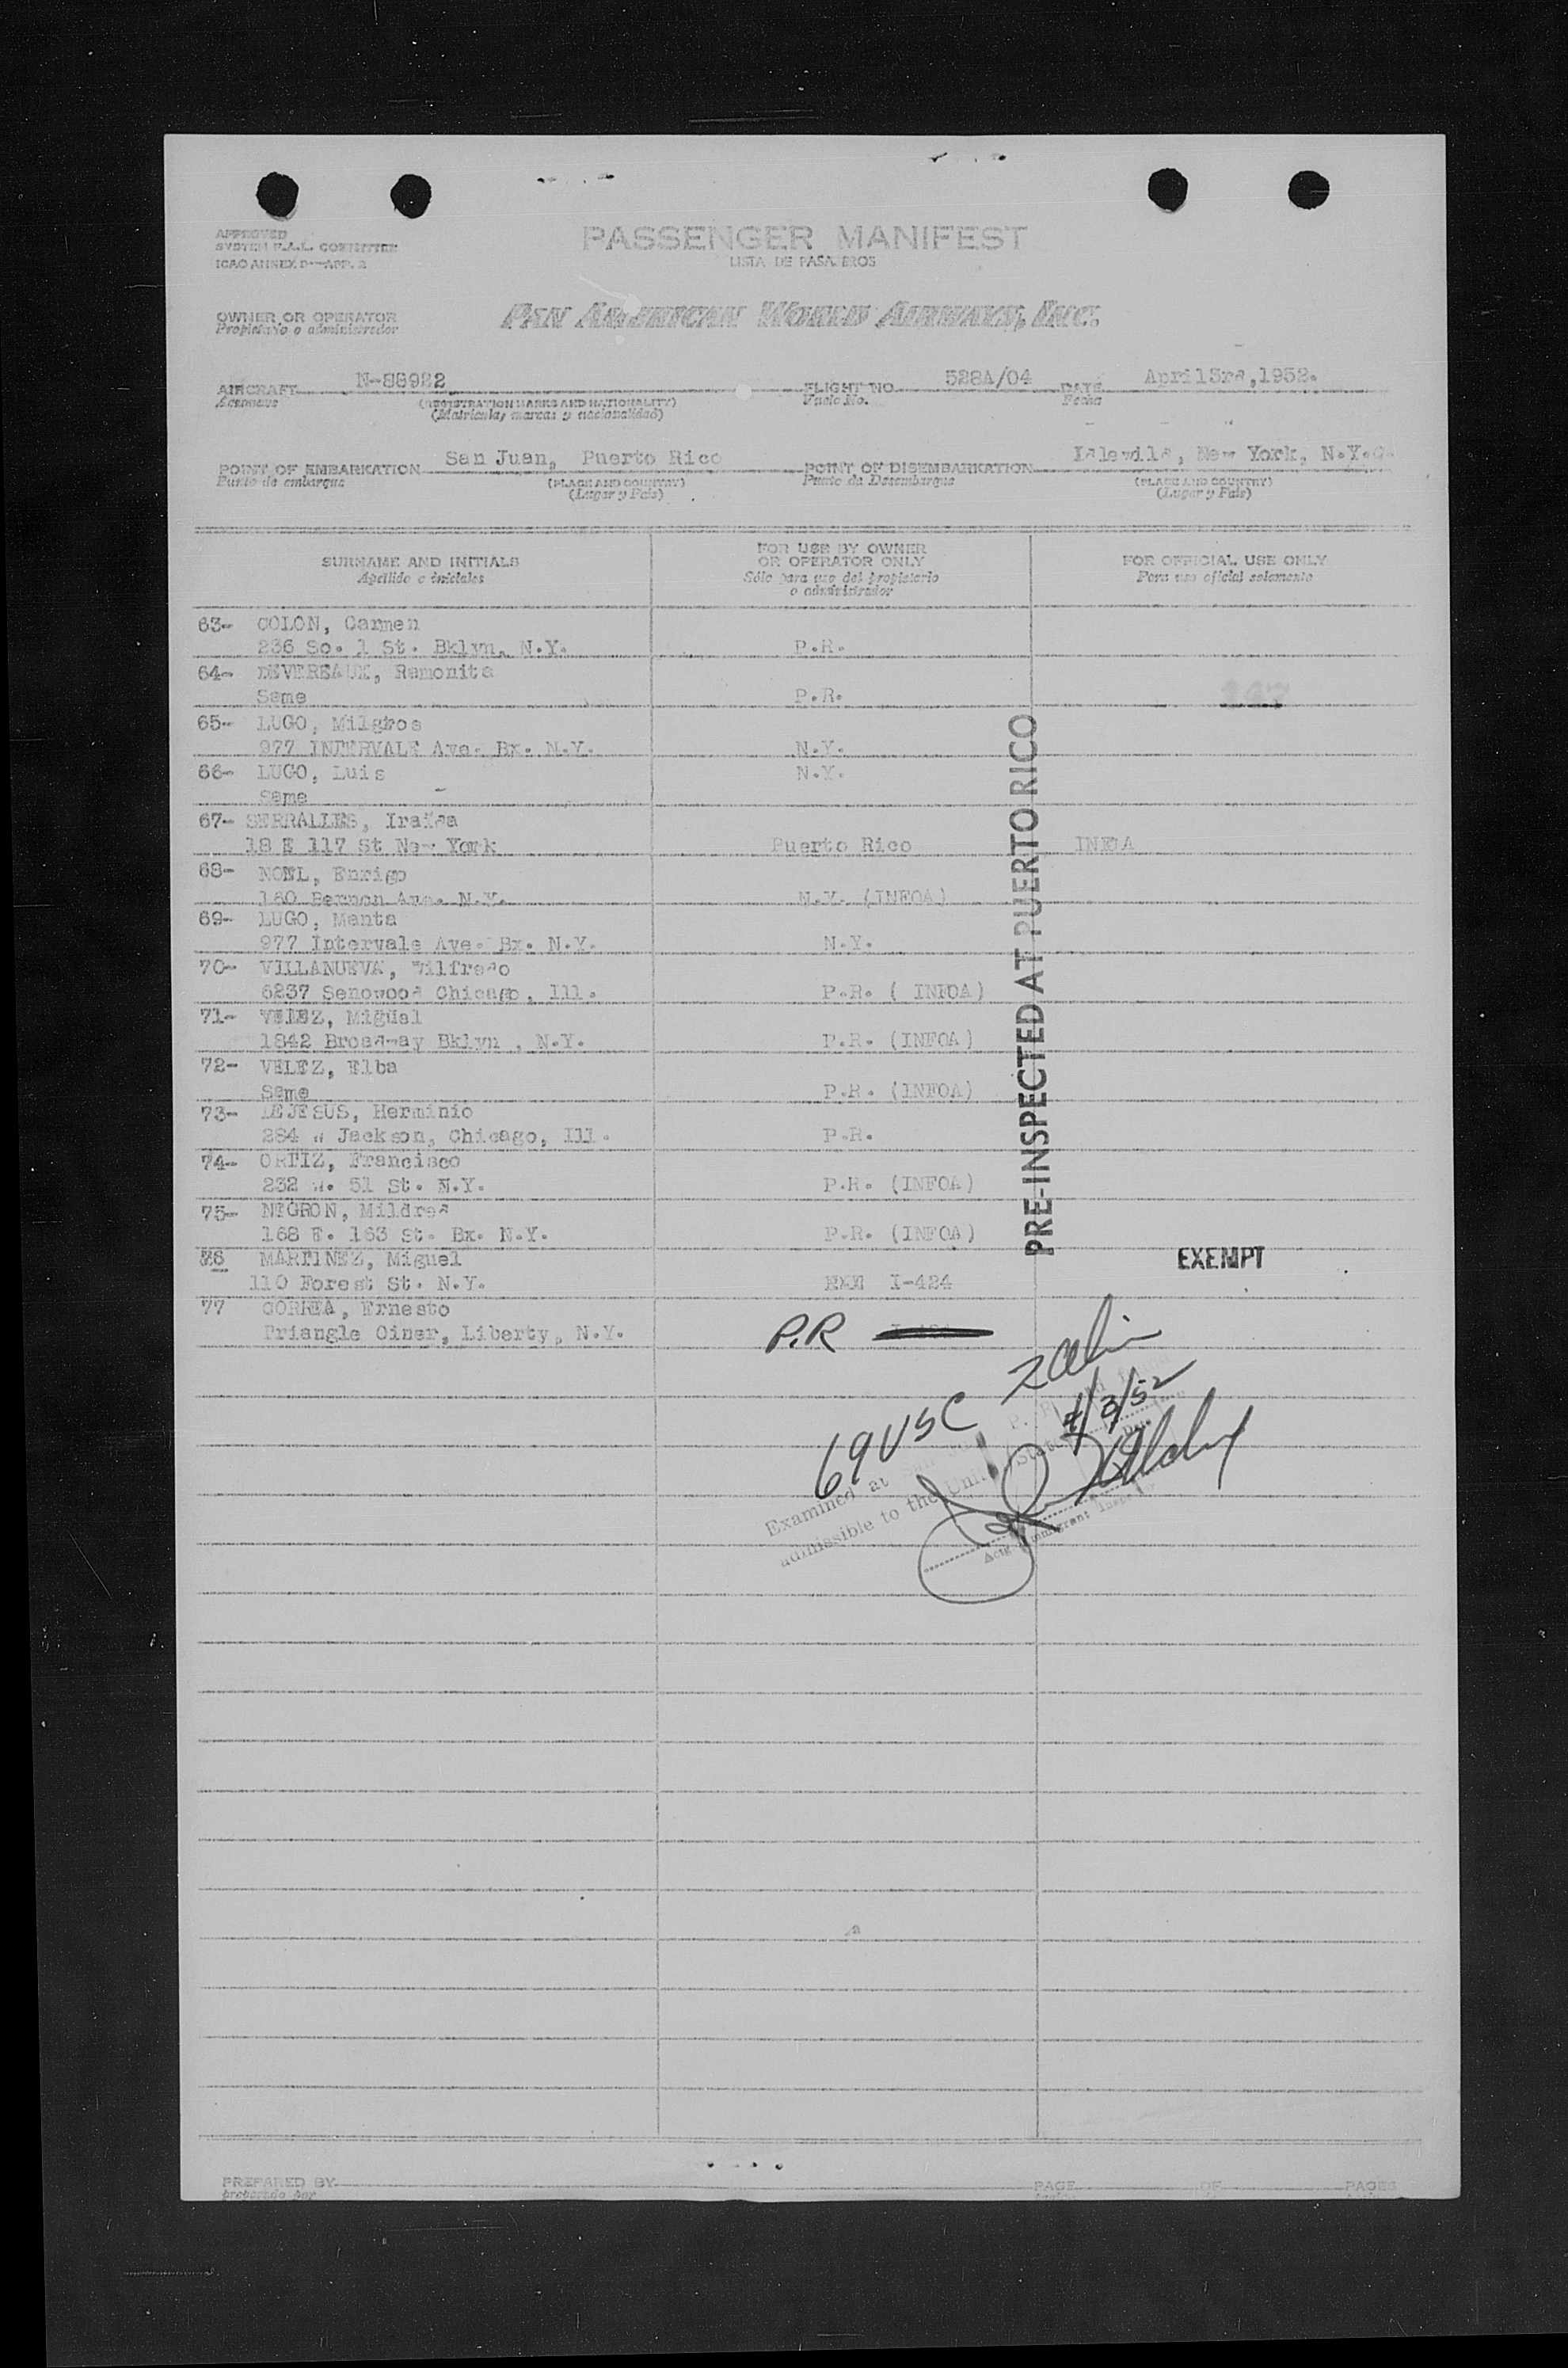 APPROVED
SYSTEM F.A.L. COMMITTEE
ICAO ANNEX 9—APP. 2
PASSENGER MANIFEST
LISTA DE PASAJEROS
OWNER OR OPERATOR
Propietario o administrador
PAN AMERICAN WORLD AIRWAYS, INC.
AIRCRAFT N-88922 FLIGHT NO. 528A/04 DATE April 3rd, 1952.
Aeronave (REGISTRATION MARKS AND NATIONALITY) Vuelo No. Fecha
(Matricula, marcas y nacionalidad)
POINT OF EMBARKATION San Juan, Puerto Rico POINT OF DISEMBARKATION Idlewild, New York, N.Y.
Punto de embarque (PLACE AND COUNTRY) Punto de Desembarque (PLACE AND COUNTRY)
(Lugar y País) (Lugar y País)
SURNAME AND INITIALS FOR USE BY OWNER OR OPERATOR ONLY FOR OFFICIAL USE ONLY
Apellido e iniciales Sólo para uso del propietario o administrador Para uso oficial solamente
63- COLON, Carmen
236 So. 1 St. Bklyn, N.Y. P.R.
64- DEVEREAUX, Ramonita
Same P.R.
65- LUGO, Milgros
977 INTERVALE Ave. Bx. N.Y. N.Y.
66- LUGO, Luis N.Y.
Same
67- SERRALLES, Iraida
18 E 117 St New York Puerto Rico
68- NOEL, Enrigo
N.Y. (INFOA)
69- LUGO, Manta
977 Intervale Ave. Bx. N.Y. N.Y.
70- VILLANUEVA, Wilfredo
6237 Senowood Chicago, Ill. P.R. ( INFOA)
71- VELEZ, Miguel
1842 Broadway Bklyn , N.Y. P.R. (INFOA)
72- VELEZ, Elba
Same P.R. (INFOA)
73- DEJESUS, Herminio
284 W Jackson, Chicago, Ill. P.R.
74- ORTIZ, Francisco
232 W. 51 St. N.Y. P.R. (INFOA)
75- NEGRON, Mildred
168 E. 163 St. Bx. N.Y. P.R. (INFOA)
76 MARTINEZ, Miguel EXEMPT
110 Forest St. N.Y. I-424
77 CORREA, Ernesto
Triangle Oiner, Liberty, N.Y. P.R
PRE-INSPECTED AT PUERTO RICO
69 USC
4/3/52
Examined at
admissible to the United States
Actg Immigrant Inspector
PREPARED BY PAGE OF PAGES
preparado por